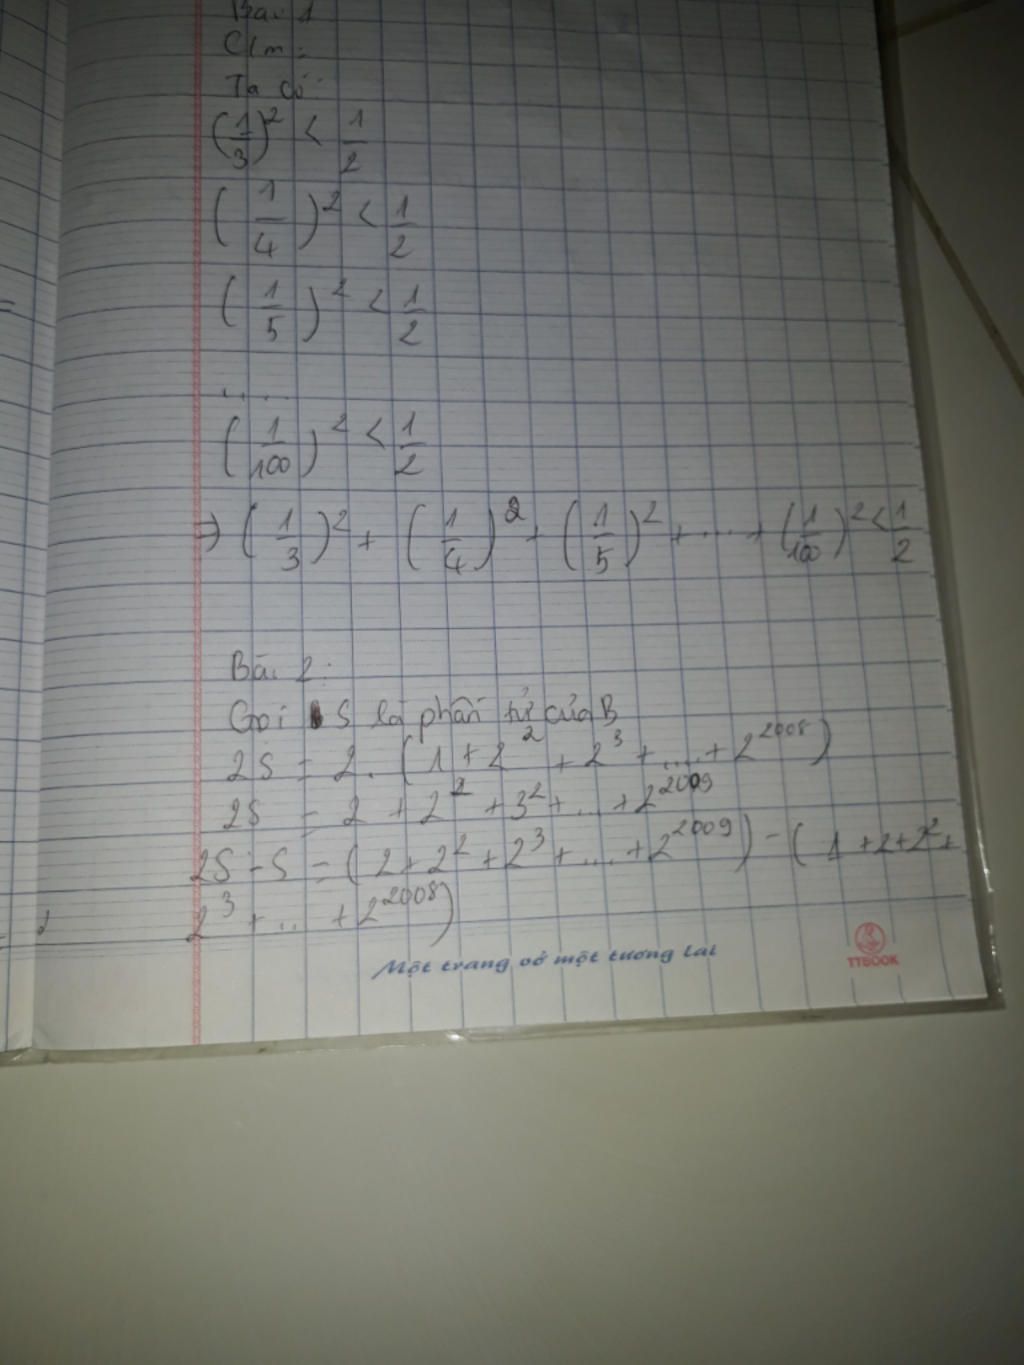 Bài 1
C/m:
Ta có:
(1/3)² < 1/2
(1/4)² < 1/2
(1/5)² < 1/2
.....
(1/100)² < 1/2
⇒ (1/3)² + (1/4)² + (1/5)² + .... + (1/100)² < 1/2
Bài 2:
Gọi S là phần tử của B
2S = 2. (1 + 2² + 2³ + ... + 2²⁰⁰⁸)
2S = 2 + 2² + 3² + ... + 2²⁰⁰⁹
2S - S = (2 + 2² + 2³ + ... + 2²⁰⁰⁹) - (1 + 2 + 2² +
2³ + ... + 2²⁰⁰⁸)
Một trang vở một tương lai
TTBOOK